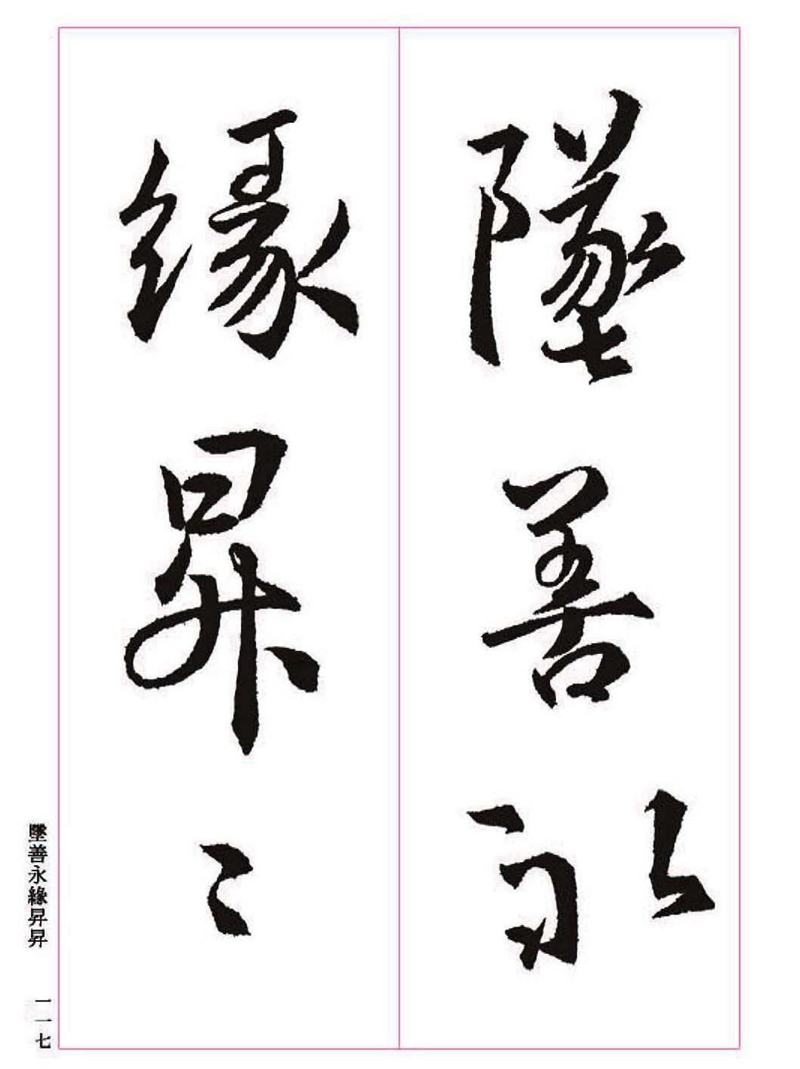 墜善永
緣昇〻
墜善永緣昇昇
一一七